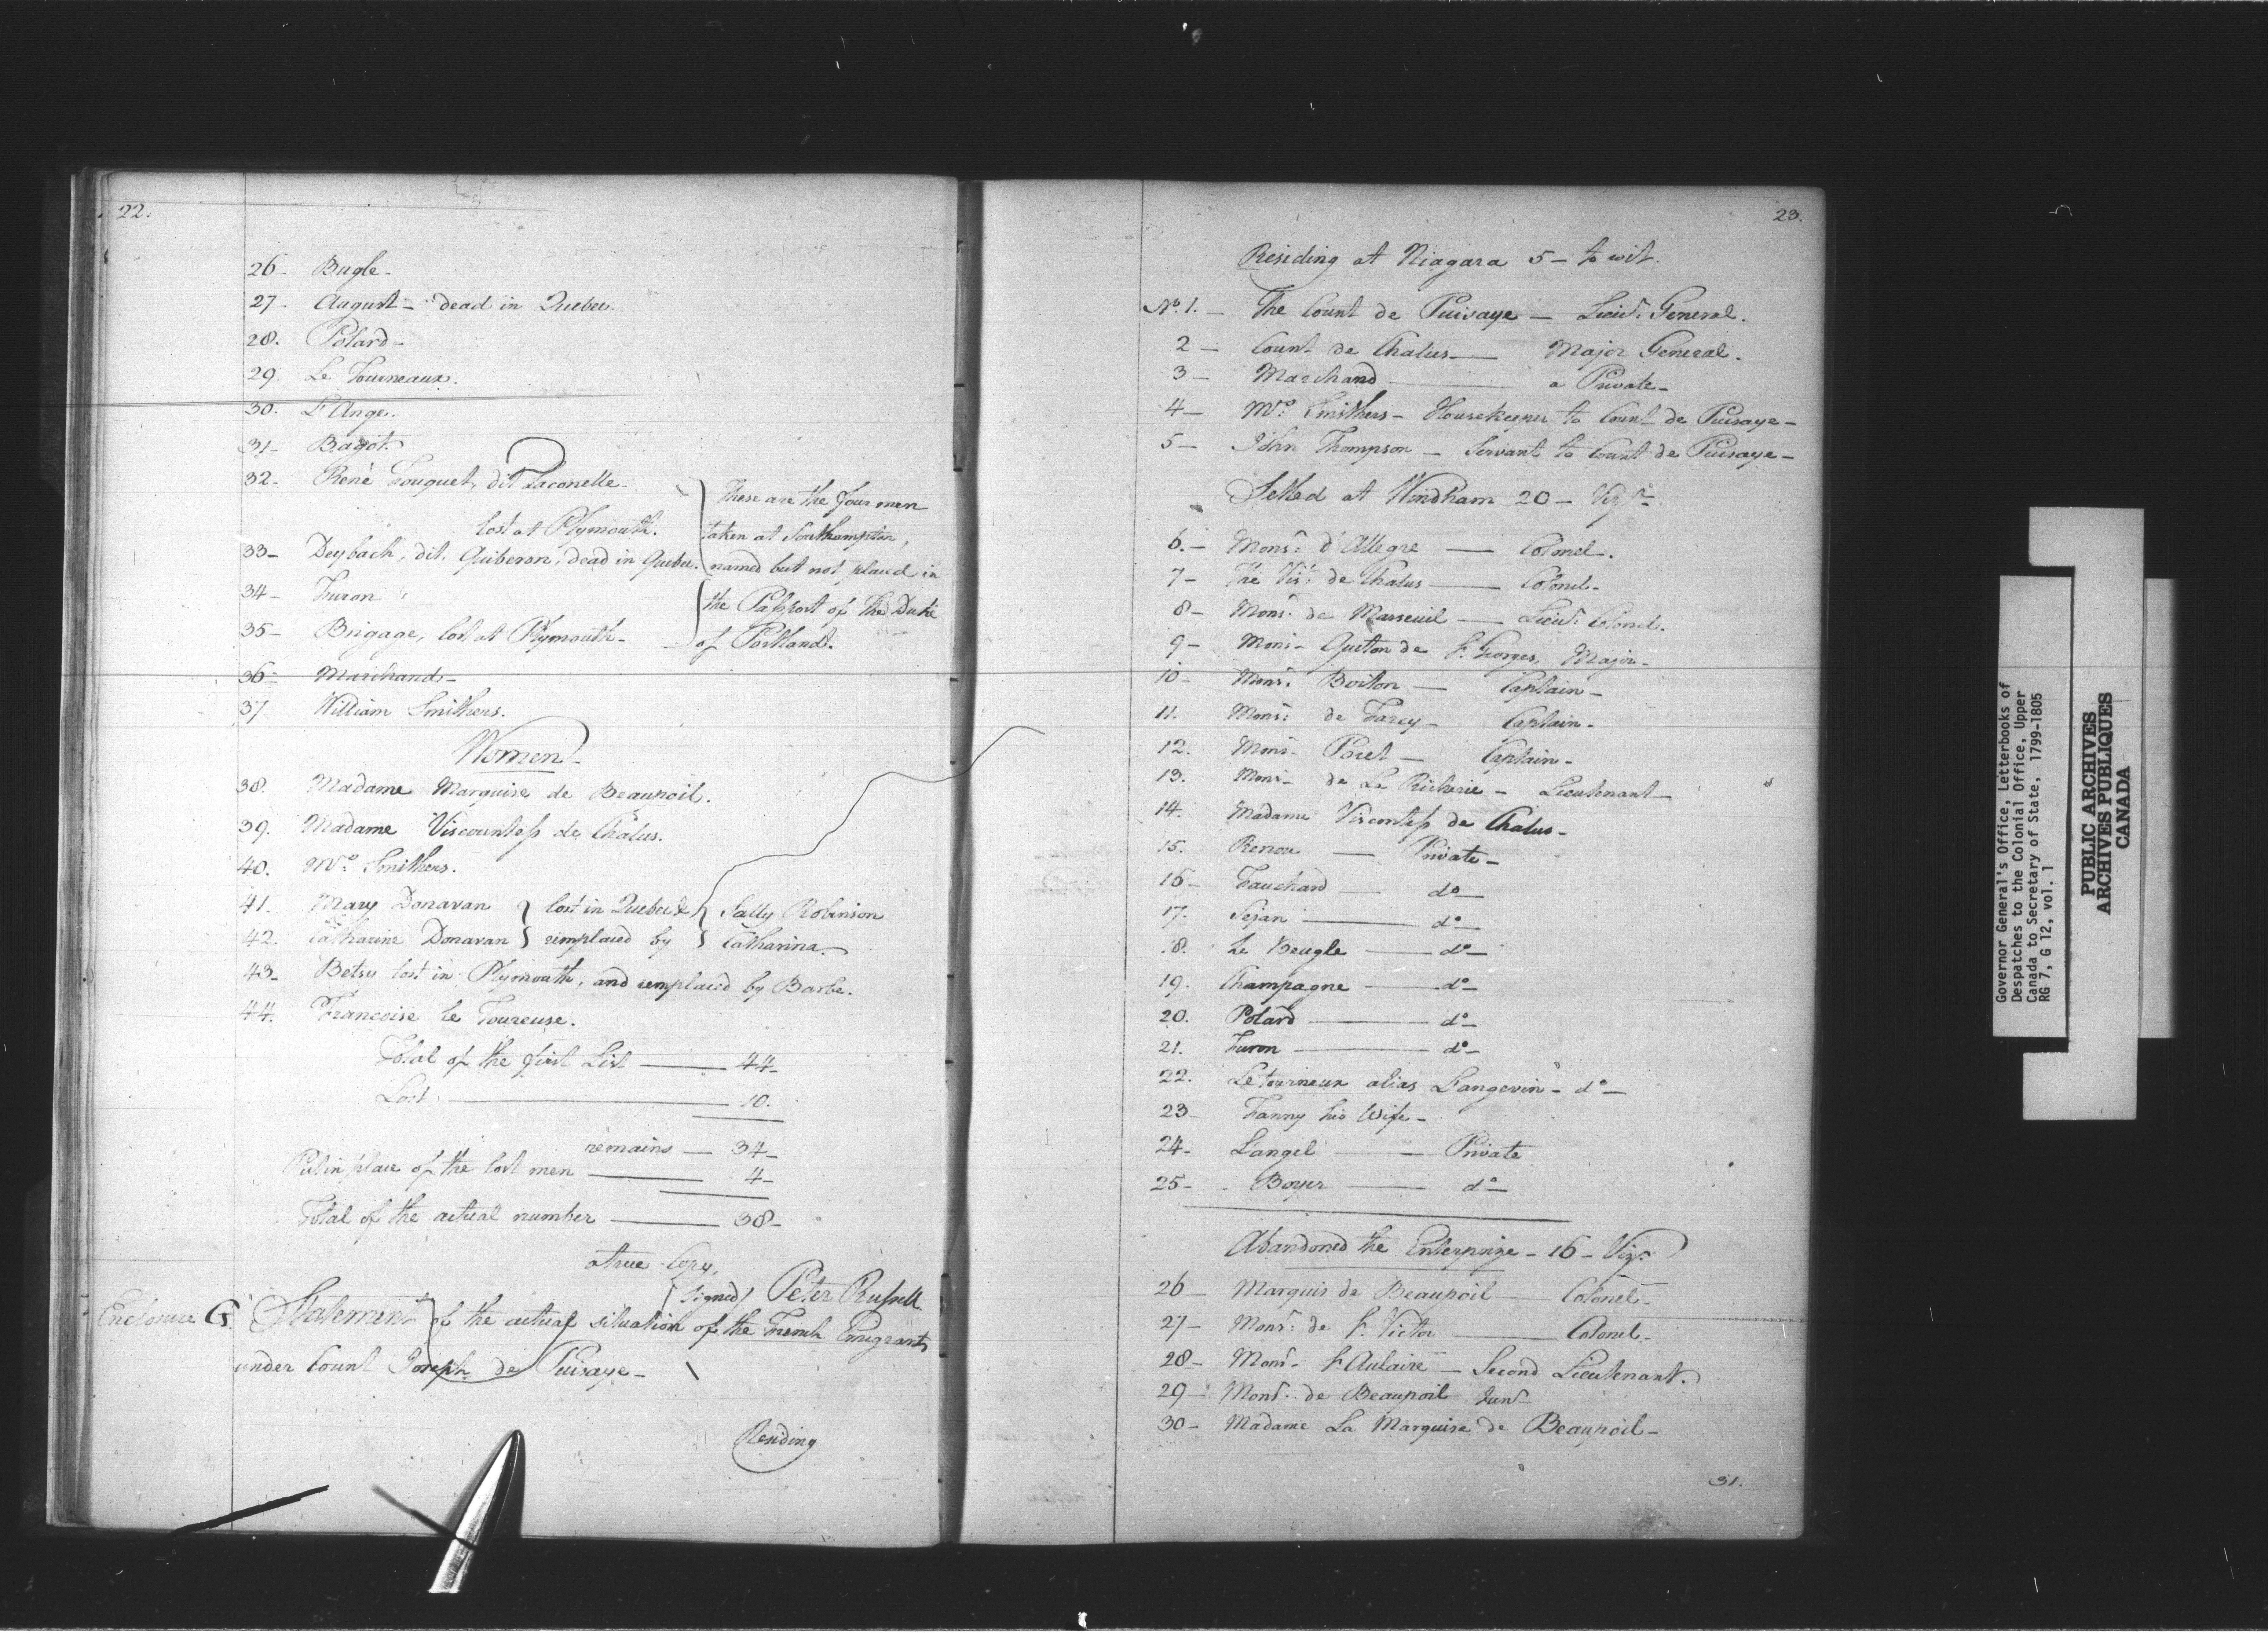 22.
26 - Bugle -
27 - August - dead in Quebec.
28. Polard -
29. Le Tourneaux.
30. L'Ange.
31 - Bagot.
32. René Fouquet, dit Laconelle -
lost at Plymouth.
33 - Deybach, dit, Quiberon, dead in Quebec.
34 - Furon
35 - Brigage, lost at Plymouth -
These are the four men
taken at Southampton,
named but not placed in
the Passport of the Duke
of Portland.
36 - Marchand -
37. William Smithers.
Women -
38. Madame Marquise de Beaupoil.
39. Madame Viscountess de Chalus.
40. Mrs. Smithers.
41. Mary Donavan } lost in Quebec & } Sally Robinson
42. Catharine Donavan } remplaced by } Catharina -
43 - Betsy lost in Plymouth, and remplaced by Barbe.
44. Francoise Le Toureuse.
Total of the first List — 44 -
Lost — 10.
remains — 34 -
Put in place of the lost men — 4 -
Total of the actual number — 38 -
a true Copy,
(signed) Peter Russell
Enclosure G. Statement of the actual situation of the French Emigrants
under Count Joseph de Puisaye -
Residing
23.
Residing at Niagara 5 - to wit.
No. 1. - The Count de Puisaye — Lieut. General.
2 - Count de Chalus — Major General.
3 - Marchand — a Private -
4 - Mrs. Smithers - Housekeeper to Count de Puisaye -
5 - John Thompson - Servant to Count de Puisaye -
Settled at Windham 20 - Vizt.
6. - Monsr. d'Allegre — Colonel.
7 - The Vist. de Chalus — Colonel -
8 - Monsr. de Marseuil — Lieut. Colonel.
9 - Monsr. Quiton de St. Georges, Major -
10 - Monsr. Boiton — Captain -
11. Monsr. de Farcy - Captain -
12. Monsr. Poret - Captain -
13. Monsr. de La Richerie - Lieutenant -
14. Madame Viscontess de Chalus -
15. Renou — Private -
16 - Fauchard — do -
17. Sejan — do -
18. Le Beugle — do -
19. Champagne — do -
20. Polard — do -
21. Furon — do -
22. Letourneux alias Langevin - do -
23 - Fanny his Wife -
24 - Langel — Private
25 - Boyer — do -
Abandoned the Enterprize - 16 - Vizt.
26 - Marquis de Beaupoil — Colonel -
27 - Monsr. de St. Victor — Colonel -
28 - Monsr. St. Aulaire - Second Lieutenant.
29 - Monsr. de Beaupoil Junr.
30 - Madame La Marquise de Beaupoil -
31.
Governor General's Office, Letterbooks of
Despatches to the Colonial Office, Upper
Canada to Secretary of State, 1799-1805
RG 7, G 12, vol. 1
PUBLIC ARCHIVES
ARCHIVES PUBLIQUES
CANADA